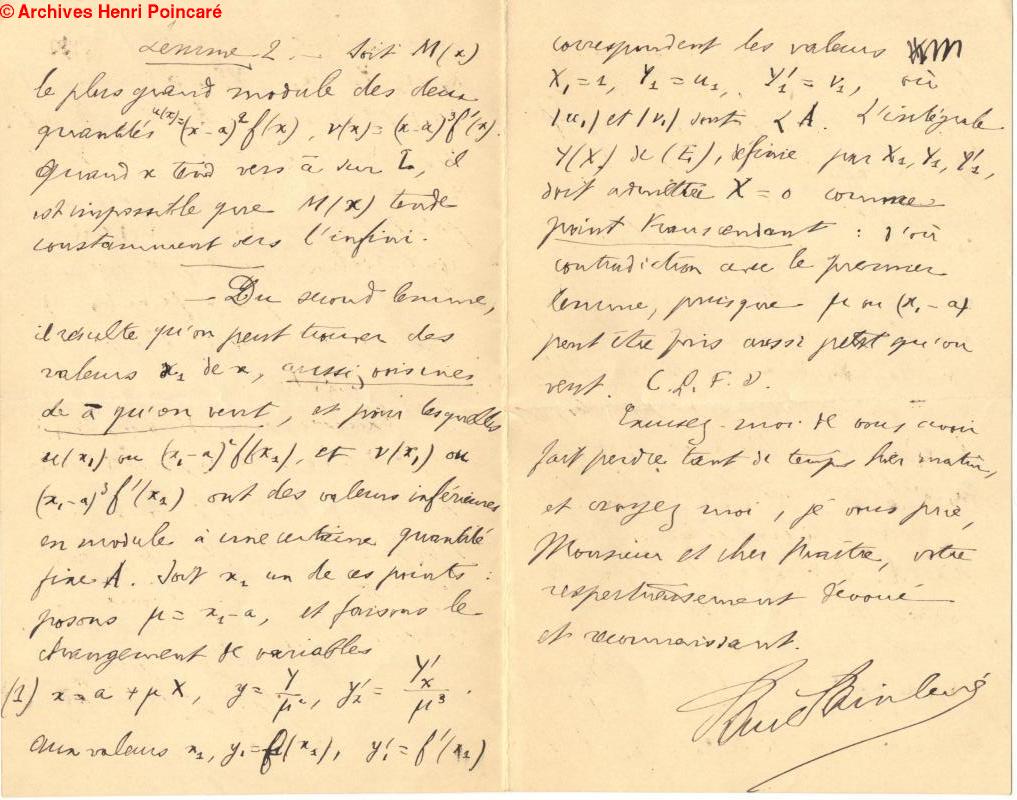 © Archives Henri Poincaré
Lemme 2. — Soit M(x)
le plus grand module des deux
quantités u(x)=(x-a)²f(x), v(x)=(x-a)³f'(x).
Quand x tend vers a sur L, il
est impossible que M(x) tende
constamment vers l'infini.
— Du second lemme,
il résulte qu'on peut trouver des
valeurs x₁ de x, aussi voisines
de a qu'on veut, et pour lesquelles
u(x₁) ou (x₁-a)²f(x₁), et v(x₁) ou
(x₁-a)³f'(x₁) ont des valeurs inférieures
en module à une certaine quantité
fixe A. Soit x₁ un de ces points :
posons μ = x₁-a, et faisons le
changement de variables
(1) x = a + μX, y = Y/μ², y'ₓ = Y'ₓ/μ³.
Aux valeurs x₁, y₁=f(x₁), y'₁=f'(x₁)
correspondent les valeurs
X₁=1, Y₁=u₁, Y'₁=v₁, où
|u₁| et |v₁| sont < A. L'intégrale
Y(X) de (E), définie par X₁, Y₁, Y'₁,
doit admettre X=0 comme
point transcendant : d'où
contradiction avec le premier
lemme, puisque μ ou (x₁-a)
peut être pris aussi petit qu'on
veut. C.Q.F.D.
Excusez-moi de vous avoir
fait perdre tant de temps hier matin,
et croyez moi, je vous prie,
Monsieur et cher Maître, votre
respectueusement dévoué
et reconnaissant.
Paul Painlevé